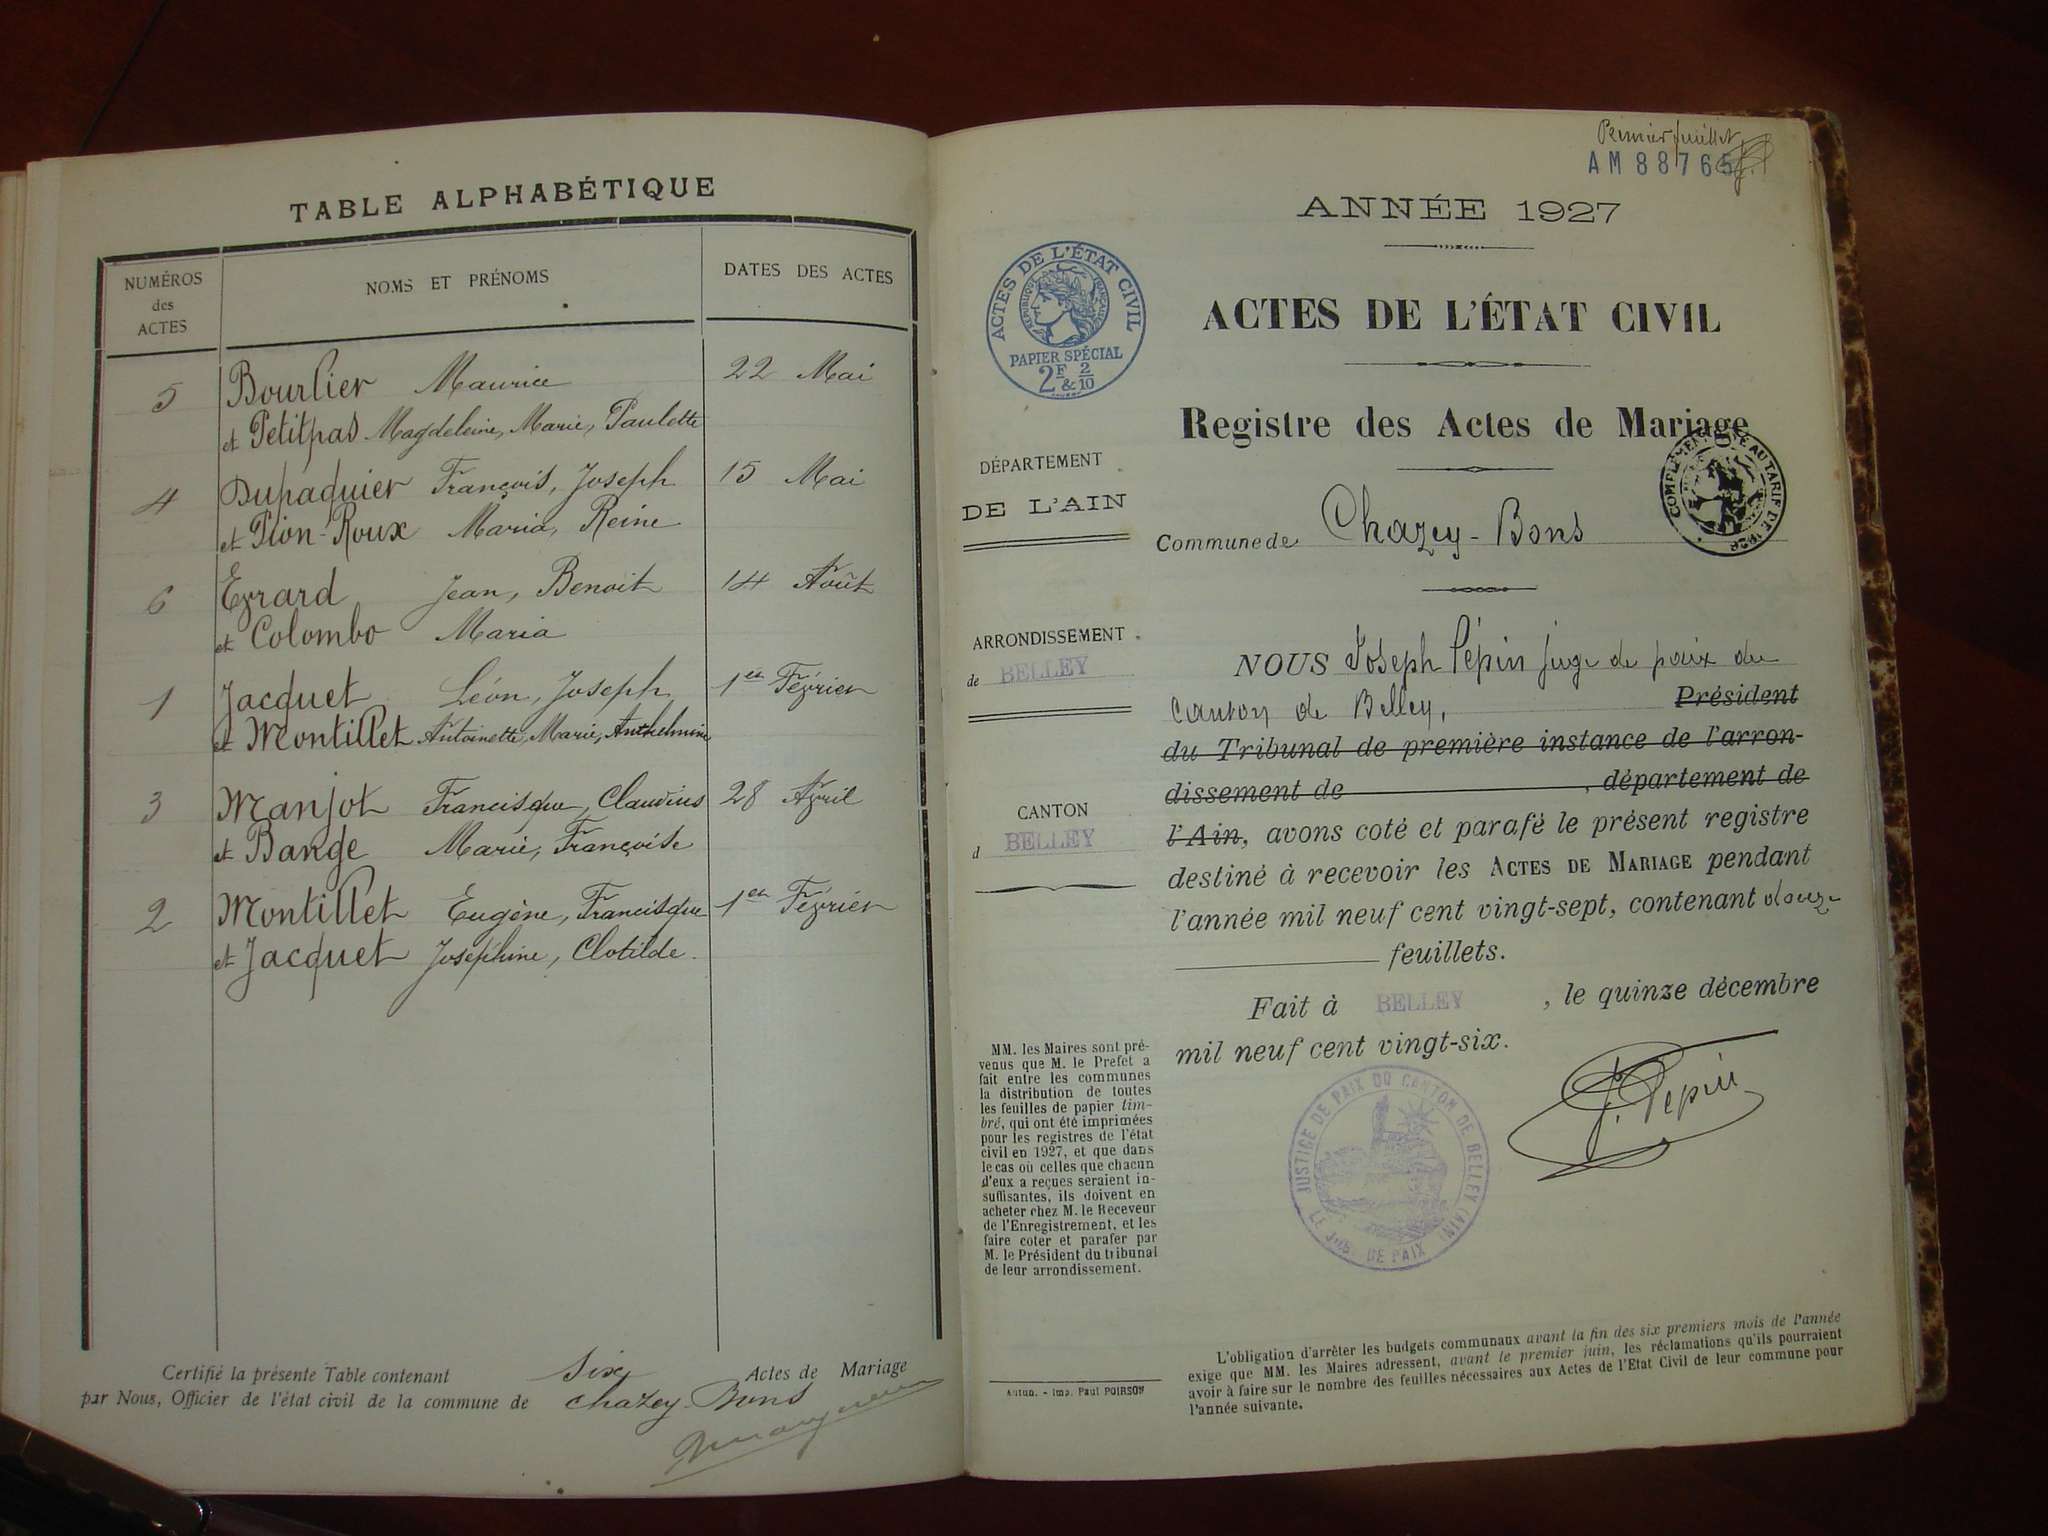 TABLE ALPHABÉTIQUE
NUMÉROS des ACTES
NOMS ET PRÉNOMS
DATES DES ACTES
5 Bourlier Maurice 22 Mai
et Petitpas Magdeleine, Marie, Paulette
4 Dupaquier François, Joseph 15 Mai
et Pion-Roux Maria, Reine
6 Evrard Jean, Benoit 14 Août
et Colombo Maria
1 Jacquet Léon, Joseph 1er Février
et Montillet Antoinette, Marie, Anthelmine
3 Manjot Francisque, Claudius 28 Avril
et Barge Marie, Françoise
2 Montillet Eugène, Francisque 1er Février
et Jacquet Joséphine, Clotilde.
Certifié la présente Table contenant six Actes de Mariage
par Nous, Officier de l'état civil de la commune de Chazey-Bons
Premier feuillet
AM 88765
ANNÉE 1927
ACTES DE L'ÉTAT CIVIL
RÉPUBLIQUE FRANÇAISE
PAPIER SPÉCIAL
2F & 2/10
ACTES DE L'ÉTAT CIVIL
Registre des Actes de Mariage
COMPLÉMENT AU TARIF DE 1926
DÉPARTEMENT
DE L'AIN
Commune de Chazey-Bons
ARRONDISSEMENT
de BELLEY
CANTON
d BELLEY
NOUS Joseph Pépin juge de paix du
canton de Belley, Président
du Tribunal de première instance de l'arron-
dissement de , département de
l'Ain, avons coté et parafé le présent registre
destiné à recevoir les ACTES DE MARIAGE pendant
l'année mil neuf cent vingt-sept, contenant douze
feuillets.
Fait à BELLEY , le quinze décembre
mil neuf cent vingt-six.
J. Pepin
JUSTICE DE PAIX DU CANTON DE BELLEY (AIN)
LE JUGE DE PAIX
MM. les Maires sont pré-
venus que M. le Prefet a
fait entre les communes
la distribution de toutes
les feuilles de papier tim-
bré, qui ont été imprimées
pour les registres de l'état
civil en 1927, et que dans
le cas où celles que chacun
d'eux a reçues seraient in-
suffisantes, ils doivent en
acheter chez M. le Receveur
de l'Enregistrement, et les
faire coter et parafer par
M. le Président du tribunal
de leur arrondissement.
Autun. - Imp. Paul POIRSON
L'obligation d'arrêter les budgets communaux avant la fin des six premiers mois de l'année
exige que MM. les Maires adressent, avant le premier juin, les réclamations qu'ils pourraient
avoir à faire sur le nombre des feuilles nécessaires aux Actes de l'Etat Civil de leur commune pour
l'année suivante.